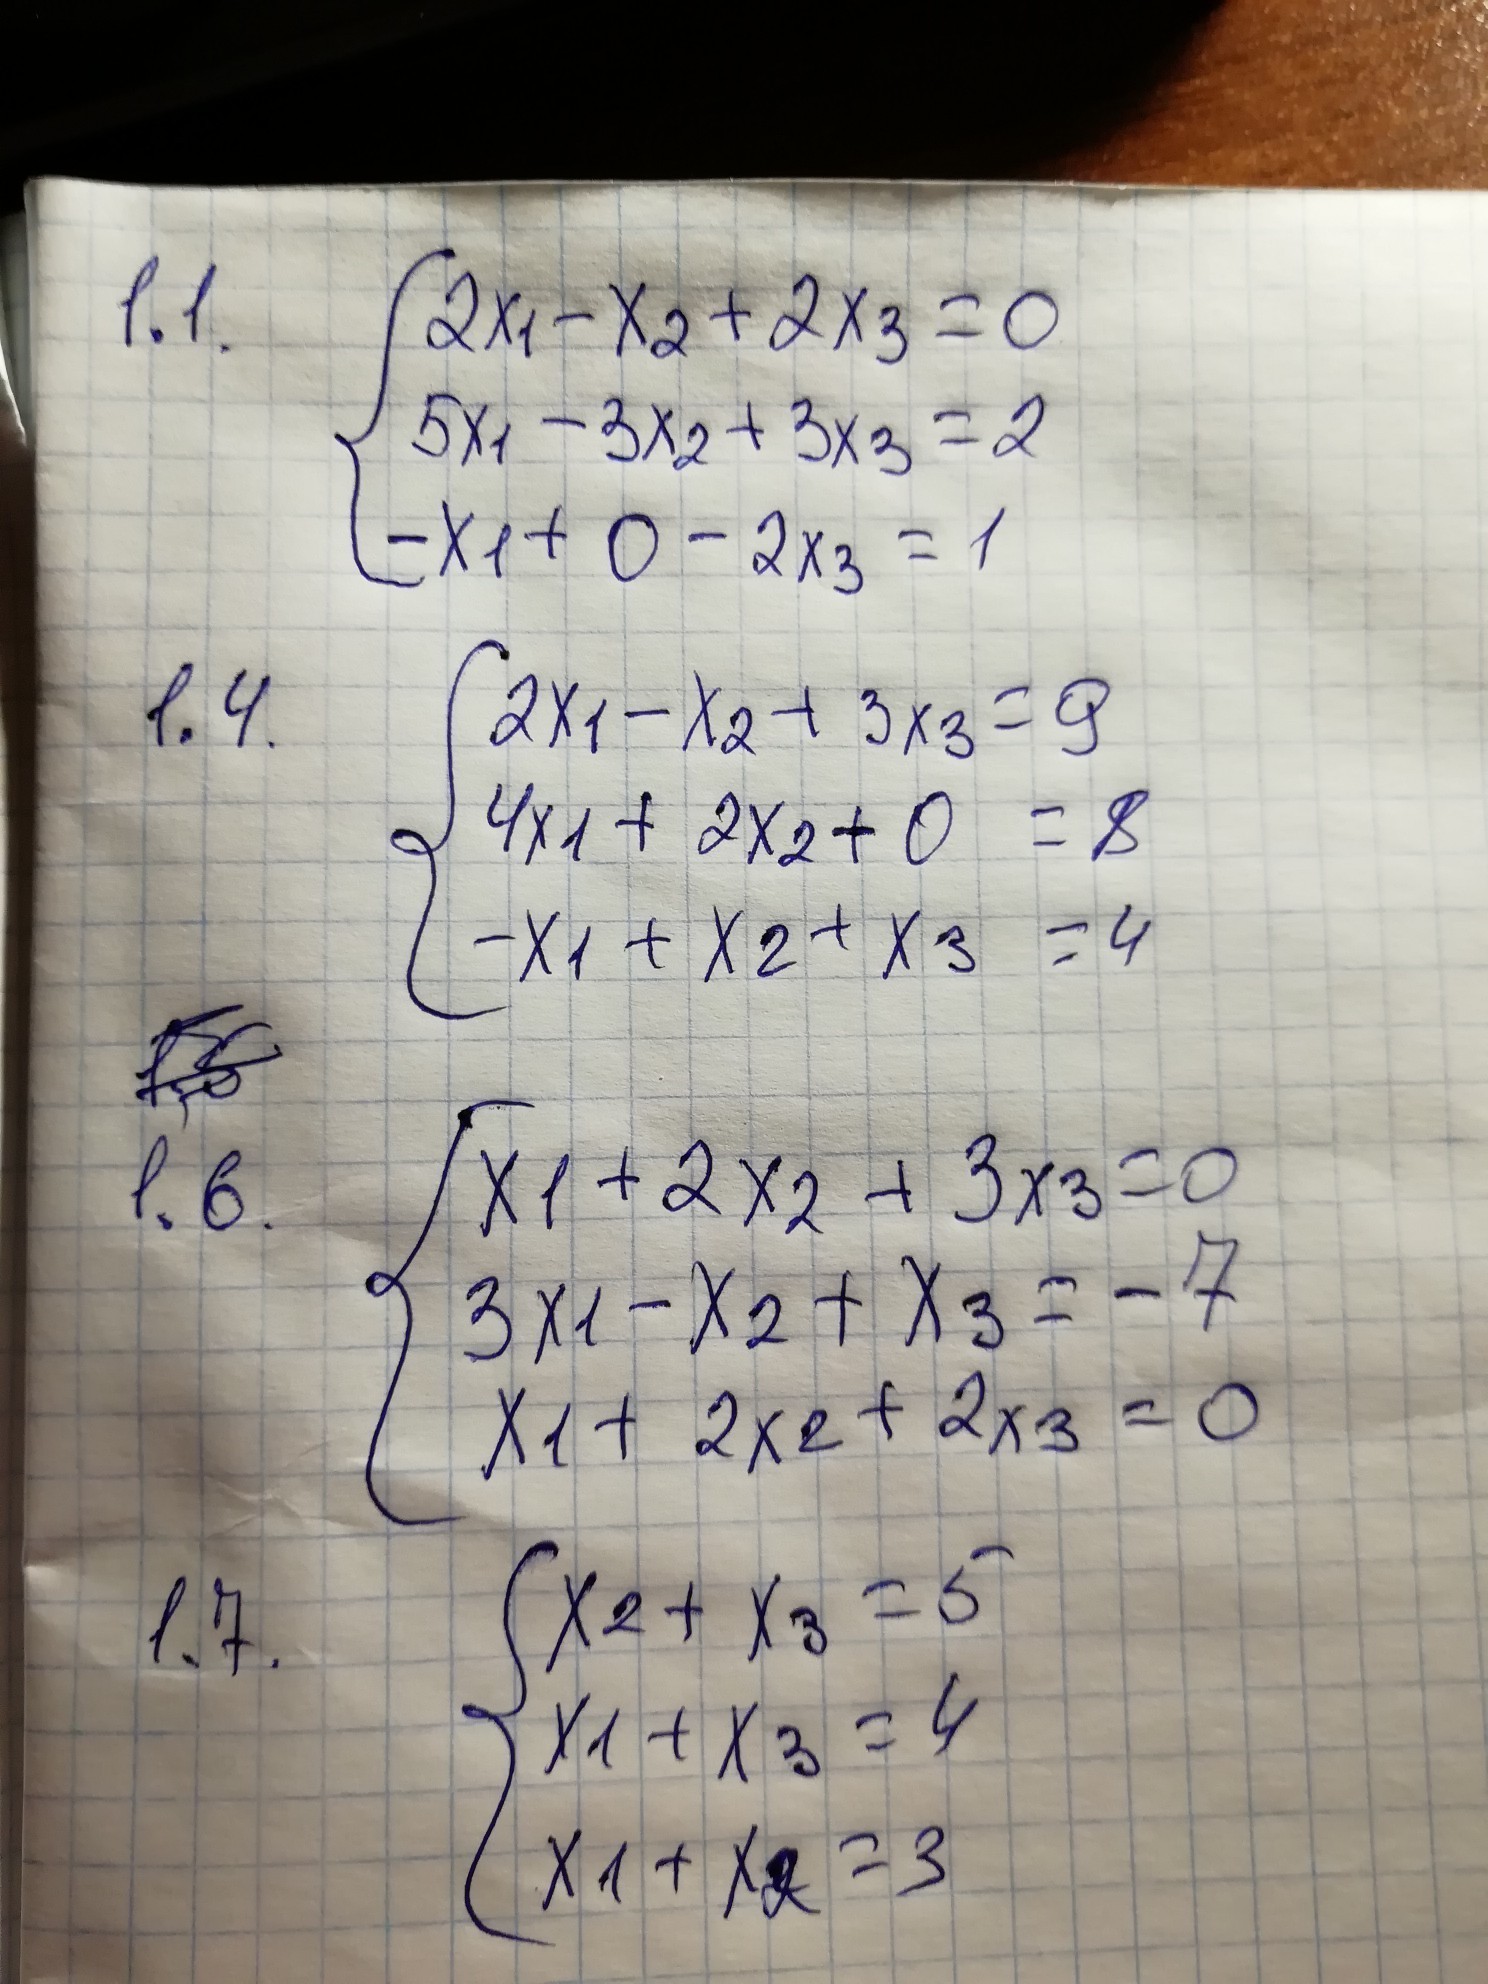 1.1. 2x1 - x2 + 2x3 = 0
5x1 - 3x2 + 3x3 = 2
-x1 + 0 - 2x3 = 1
1.4. 2x1 - x2 + 3x3 = 9
4x1 + 2x2 + 0 = 8
-x1 + x2 + x3 = 4
1.6. x1 + 2x2 + 3x3 = 0
3x1 - x2 + x3 = -7
x1 + 2x2 + 2x3 = 0
1.7. x2 + x3 = 5
x1 + x3 = 4
x1 + x2 = 3